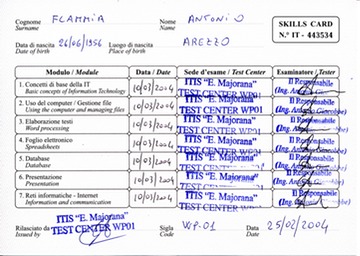 Cognome FLAMMIA Nome ANTONIO SKILLS CARD
Surname Name N.° IT - 443534
Data di nascita 26/06/1956 Luogo di nascita AREZZO
Date of birth Place of birth
Modulo / Module Data / Date Sede d'esame / Test Center Esaminatore / Tester
1. Concetti di base della IT 10/03/2004 ITIS "E. Majorana" Il Responsabile
Basic concepts of Information Technology TEST CENTER WP01 (Ing.
2. Uso del computer / Gestione file 10/03/2004 ITIS "E. Majorana" Il Responsabile
Using the computer and managing files TEST CENTER WP01 (Ing.
3. Elaborazione testi 10/03/2004 ITIS "E. Majorana" Il Responsabile
Word processing TEST CENTER WP01 (Ing.
4. Foglio elettronico 10/03/2004 ITIS "E. Majorana" Il Responsabile
Spreadsheets TEST CENTER WP01 (Ing.
5. Database 10/03/2004 ITIS "E. Majorana" Il Responsabile
Database TEST CENTER WP01 (Ing.
6. Presentazione 10/03/2004 ITIS "E. Majorana" Il Responsabile
Presentation TEST CENTER WP01 (Ing.
7. Reti informatiche - Internet 10/03/2004 ITIS "E. Majorana" Il Responsabile
Information and communication TEST CENTER WP01 (Ing.
ITIS "E. Majorana"
Rilasciato da TEST CENTER WP01 Sigla WP-01 Data 25/02/2004
Issued by Code Date